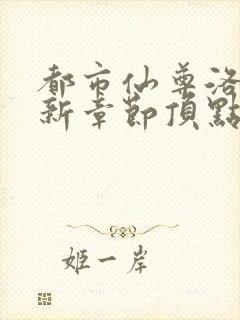 都市仙尊洛
新章節頂點
姬一岸